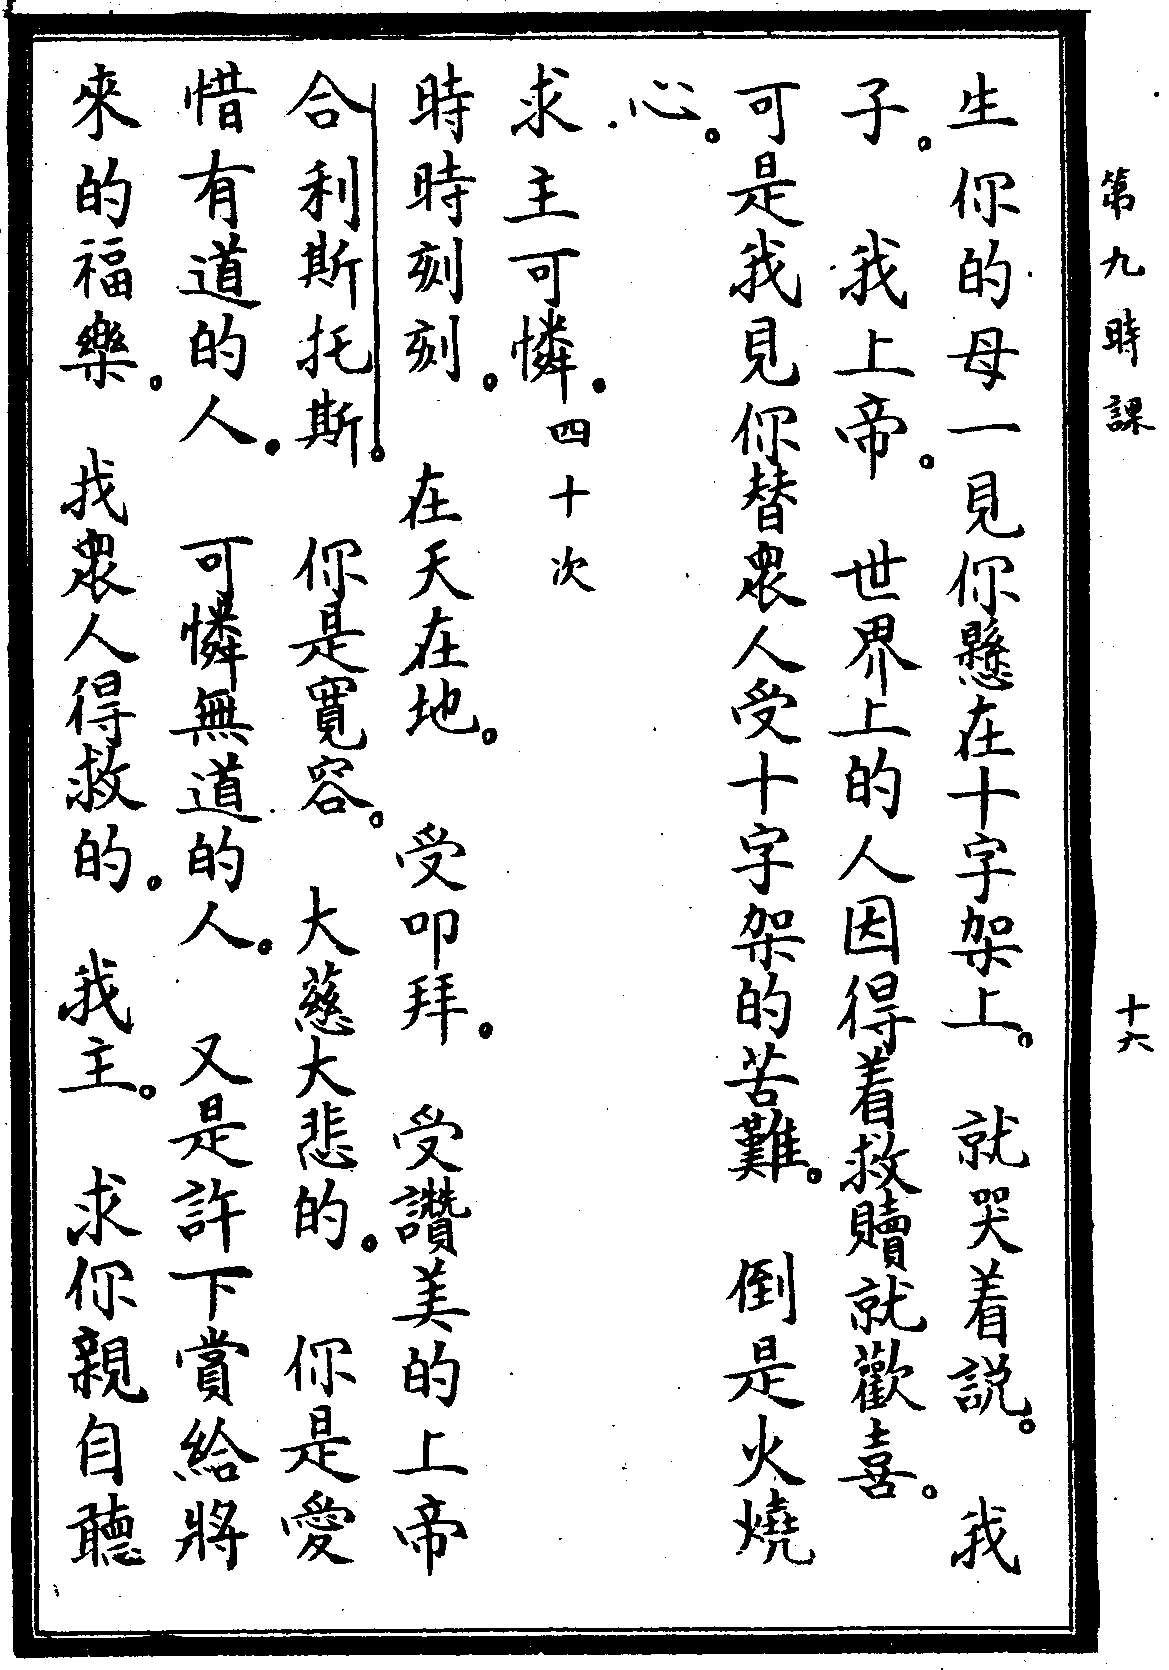 第九時課
十六
生你的母一見你懸在十字架上。 就哭着説。 我
子。 我上帝。 世界上的人因得着救贖就歡喜。
可是我見你替眾人受十字架的苦難。 倒是火燒
心。
求主可憐。四十次
時時刻刻。 在天在地。 受叩拜。 受讚美的上帝
合利斯托斯。 你是寬容。 大慈大悲的。 你是愛
惜有道的人。 可憐無道的人。 又是許下賞給將
來的福樂。 我眾人得救的。 我主。 求你親自聽